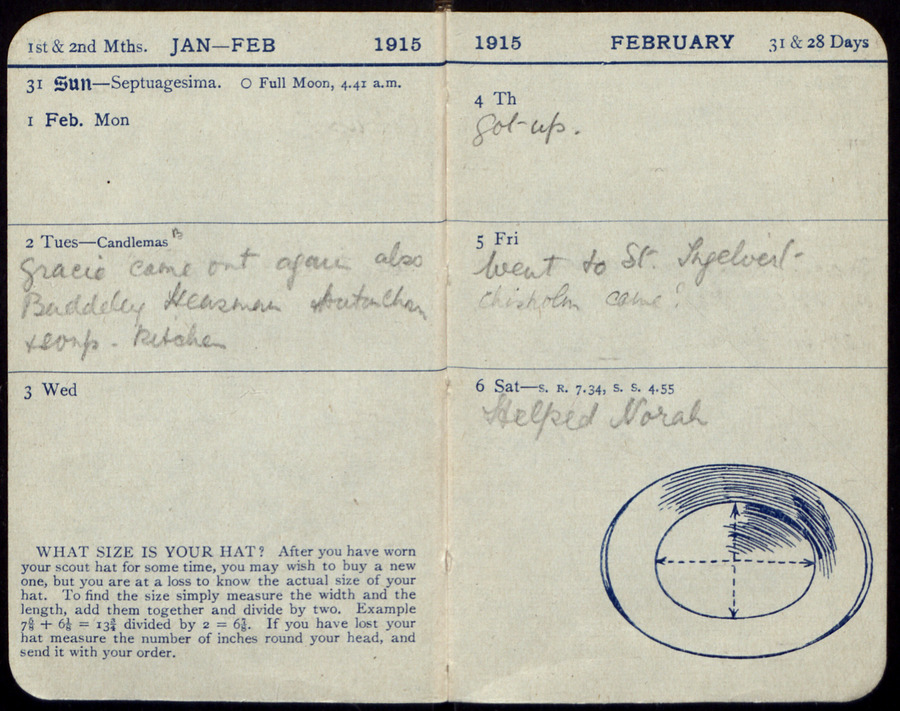 1st & 2nd Mths. JAN—FEB 1915
31 Sun—Septuagesima. O Full Moon, 4.41 a.m.
1 Feb. Mon
2 Tues—Candlemas
Gracie came out again also
Baddeley Hensman
& soup. Kitchen
3 Wed
WHAT SIZE IS YOUR HAT? After you have worn
your scout hat for some time, you may wish to buy a new
one, but you are at a loss to know the actual size of your
hat. To find the size simply measure the width and the
length, add them together and divide by two. Example
7⅝ + 6⅛ = 13¾ divided by 2 = 6⅞. If you have lost your
hat measure the number of inches round your head, and
send it with your order.
1915 FEBRUARY 31 & 28 Days
4 Th
Got-up.
5 Fri
Went to St. Ingelvert-
Chisholm came!
6 Sat—S. R. 7.34, S. S. 4.55
Helped Norah